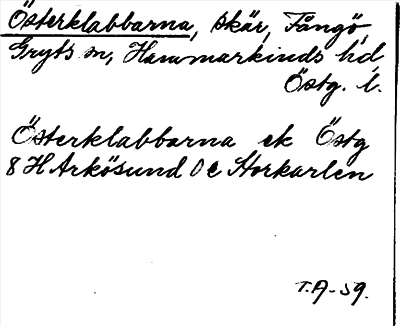 Österklabbarna, skär, Fångö,
Gryts sn, Hammarkinds hd,
Östg. l.
Österklabbarna ek Östg
8 H Arkösund 0 c Storkarlen
T.A-59.